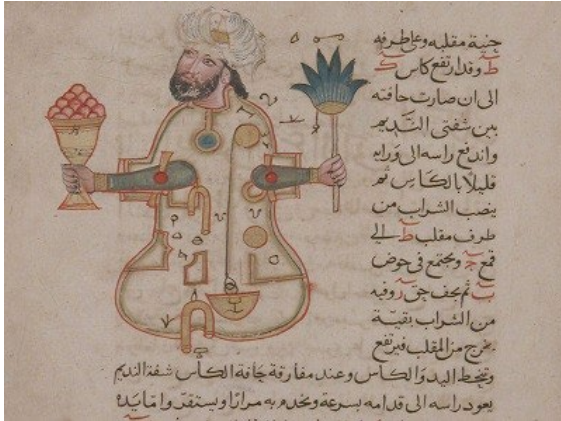 جنبة مقلبه وعلى طرفه
ط وقد ارتفع كاس ك
الى ان صارت حافته
بين شفتى النديم
واندفع راسه الى ورايه
قليلا بالكاس ثم
ينصب الشراب من
طرف مقلب ط الى
قمع ج ويجتمع فى حوض
ب ثم يجف حق ر وفيه
من الشراب بقية
يخرج من المقلب فيرتفع
وتنحط اليد والكاس وعند مفارقة حافة الكاس شفة النديم
يعود راسه الى قدامه بسرعة ويخدم به مرارا ويستقر واما يده